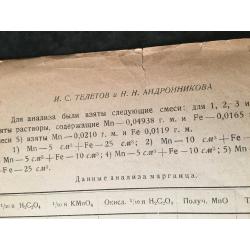 И. С. ТЕЛЕТОВ и Н. Н. АНДРОННИКОВА
Для анализа были взяты следующие смеси: для 1, 2, 3 и
яты растворы, содержащие Mn—0,04938 г. м. и Fe—0,0165
меси 5) взяты Mn—0,0210 г. м. и Fe 0,0119 г. м.
1) Mn—5 с.м³+Fe—25 см³; 2) Mn—10 с.м³+
4) Mn—5 с.м³+Fe—10 с.м³; 4) Mn—5 с.м³+Fe—5 с.м³; 5) Mn—
+Fe—25 см³.
Данные анализа марганца.
¹/₁₀ н H₂C₂O₄ ¹/₁₀ н KMnO₄ Окисл. ¹/₁₀ н H₂C₂O₄ Получ. MnO